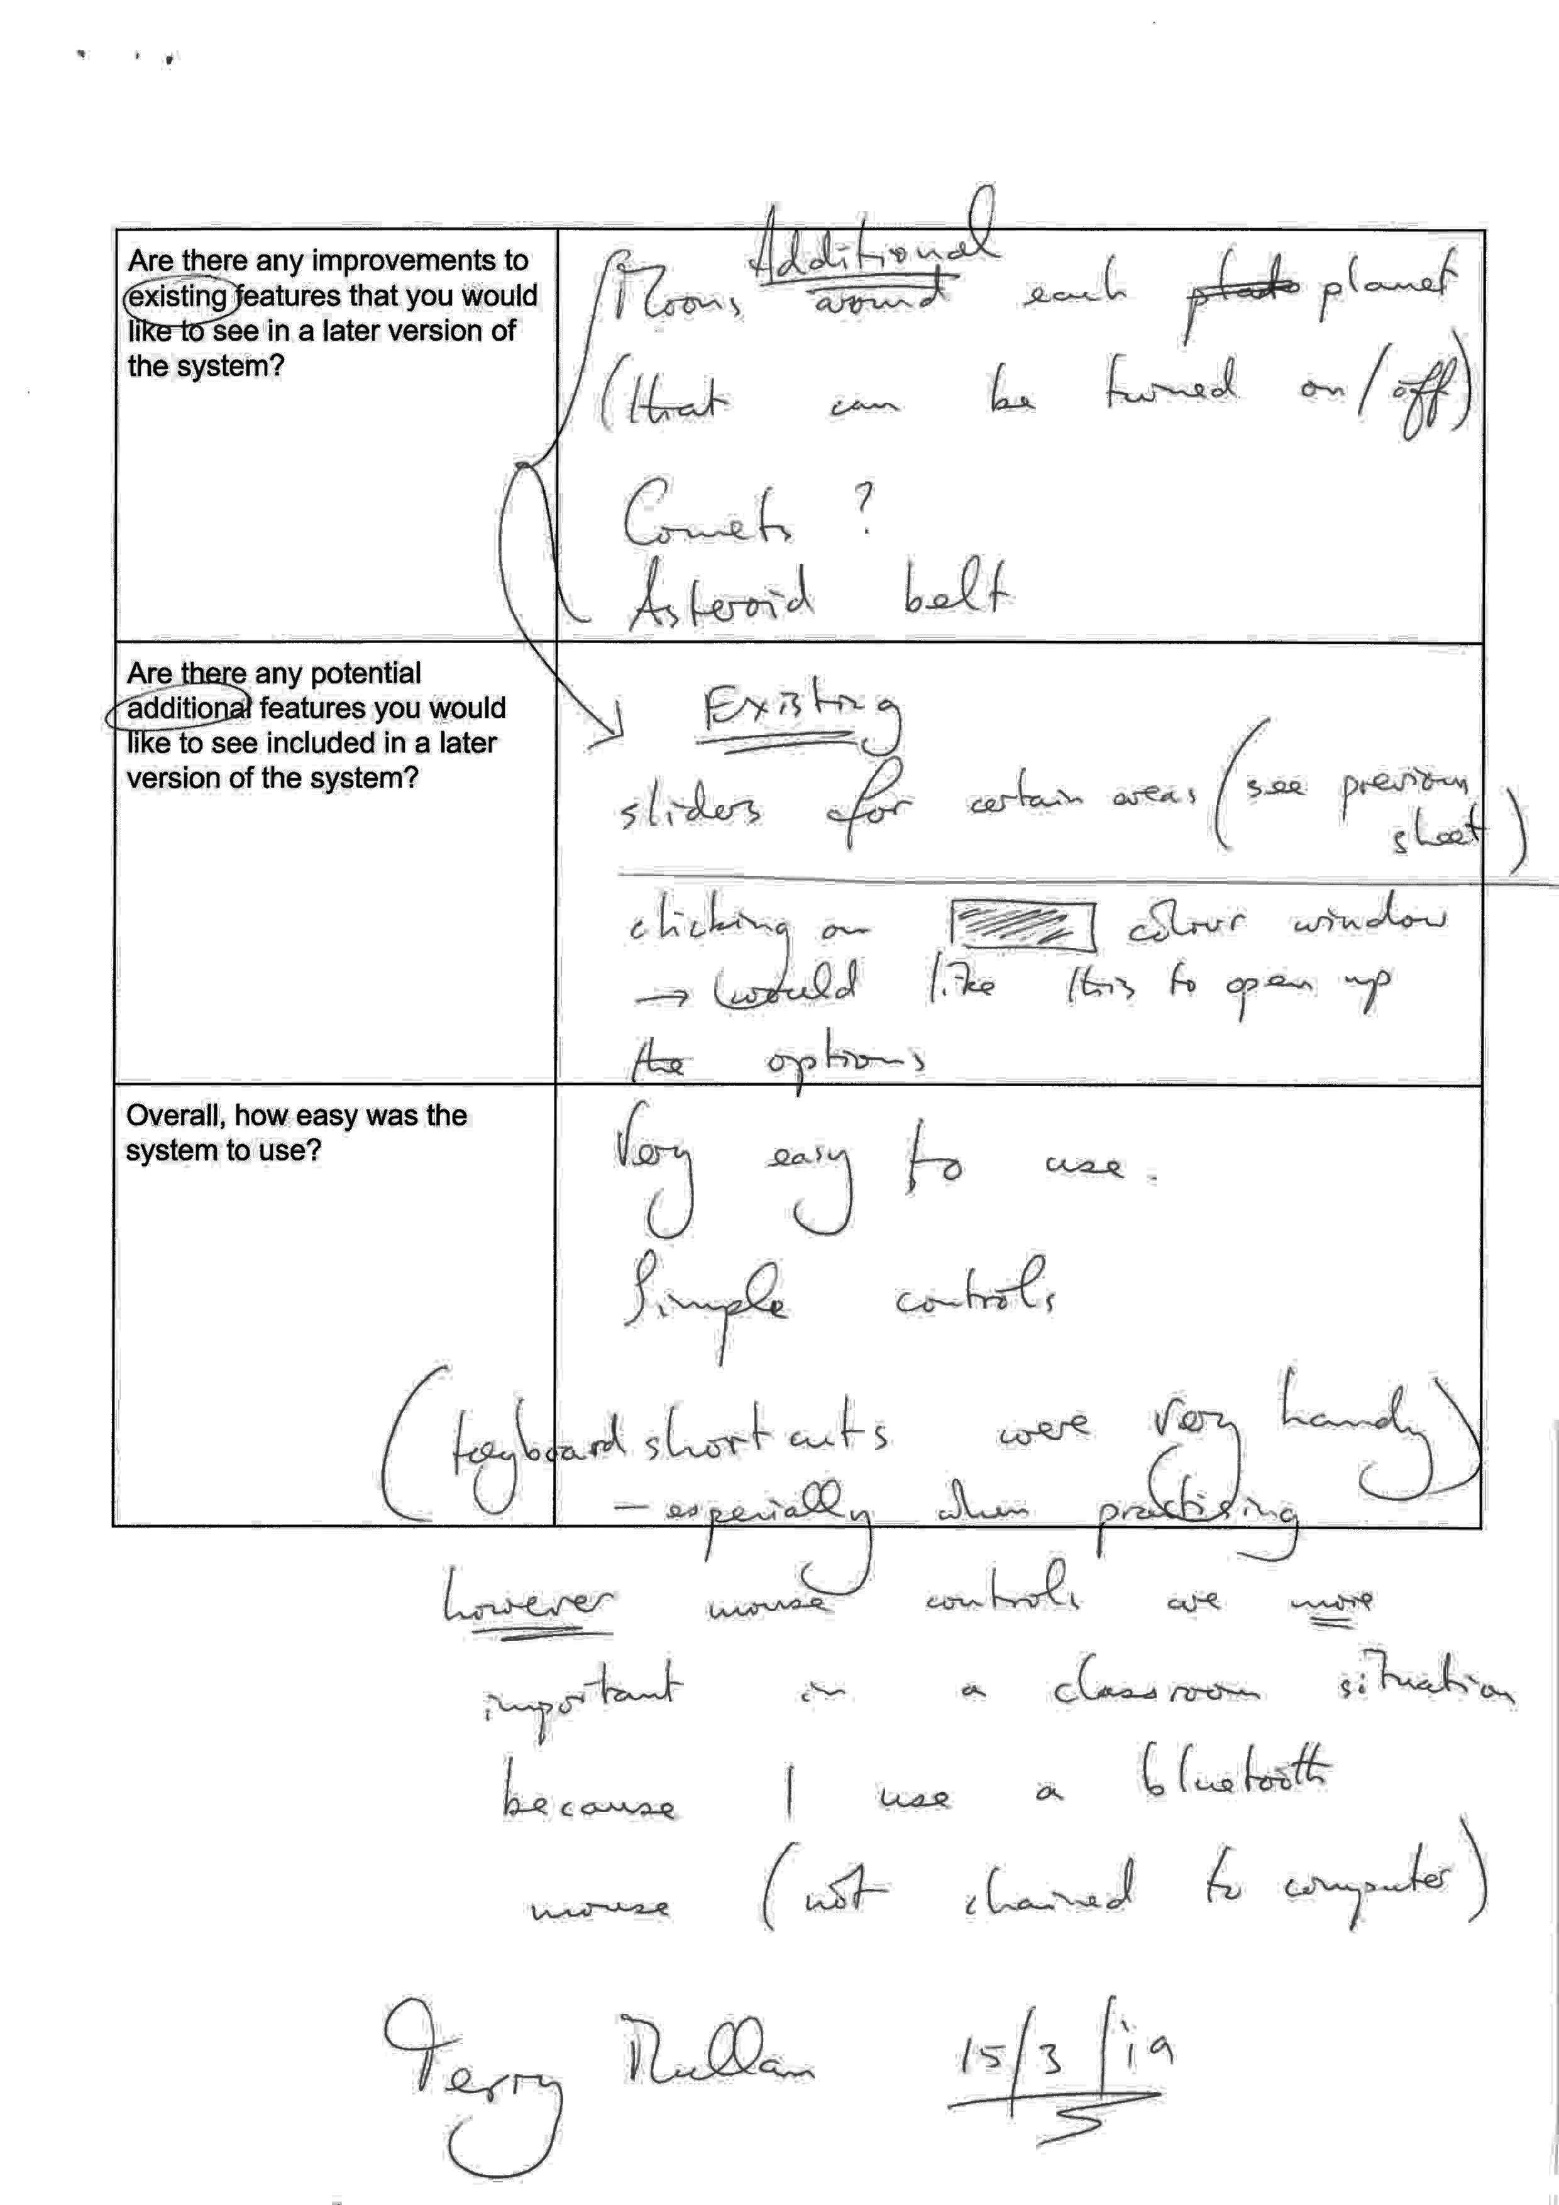 Are there any improvements to
existing features that you would
like to see in a later version of
the system?
Additional
Moons around each planet
(that can be turned on/off)
Comets ?
Asteroid belt
Are there any potential
additional features you would
like to see included in a later
version of the system?
Existing
sliders for certain areas (see previous
sheet)
clicking on colour window
→ would like this to open up
the options
Overall, how easy was the
system to use?
Very easy to use.
Simple controls
(keyboard shortcuts were very handy)
- especially when practising
however mouse controls are more
important in a classroom situation
because I use a bluetooth
mouse (not chained to computer)
Terry Mullan 15/3/19